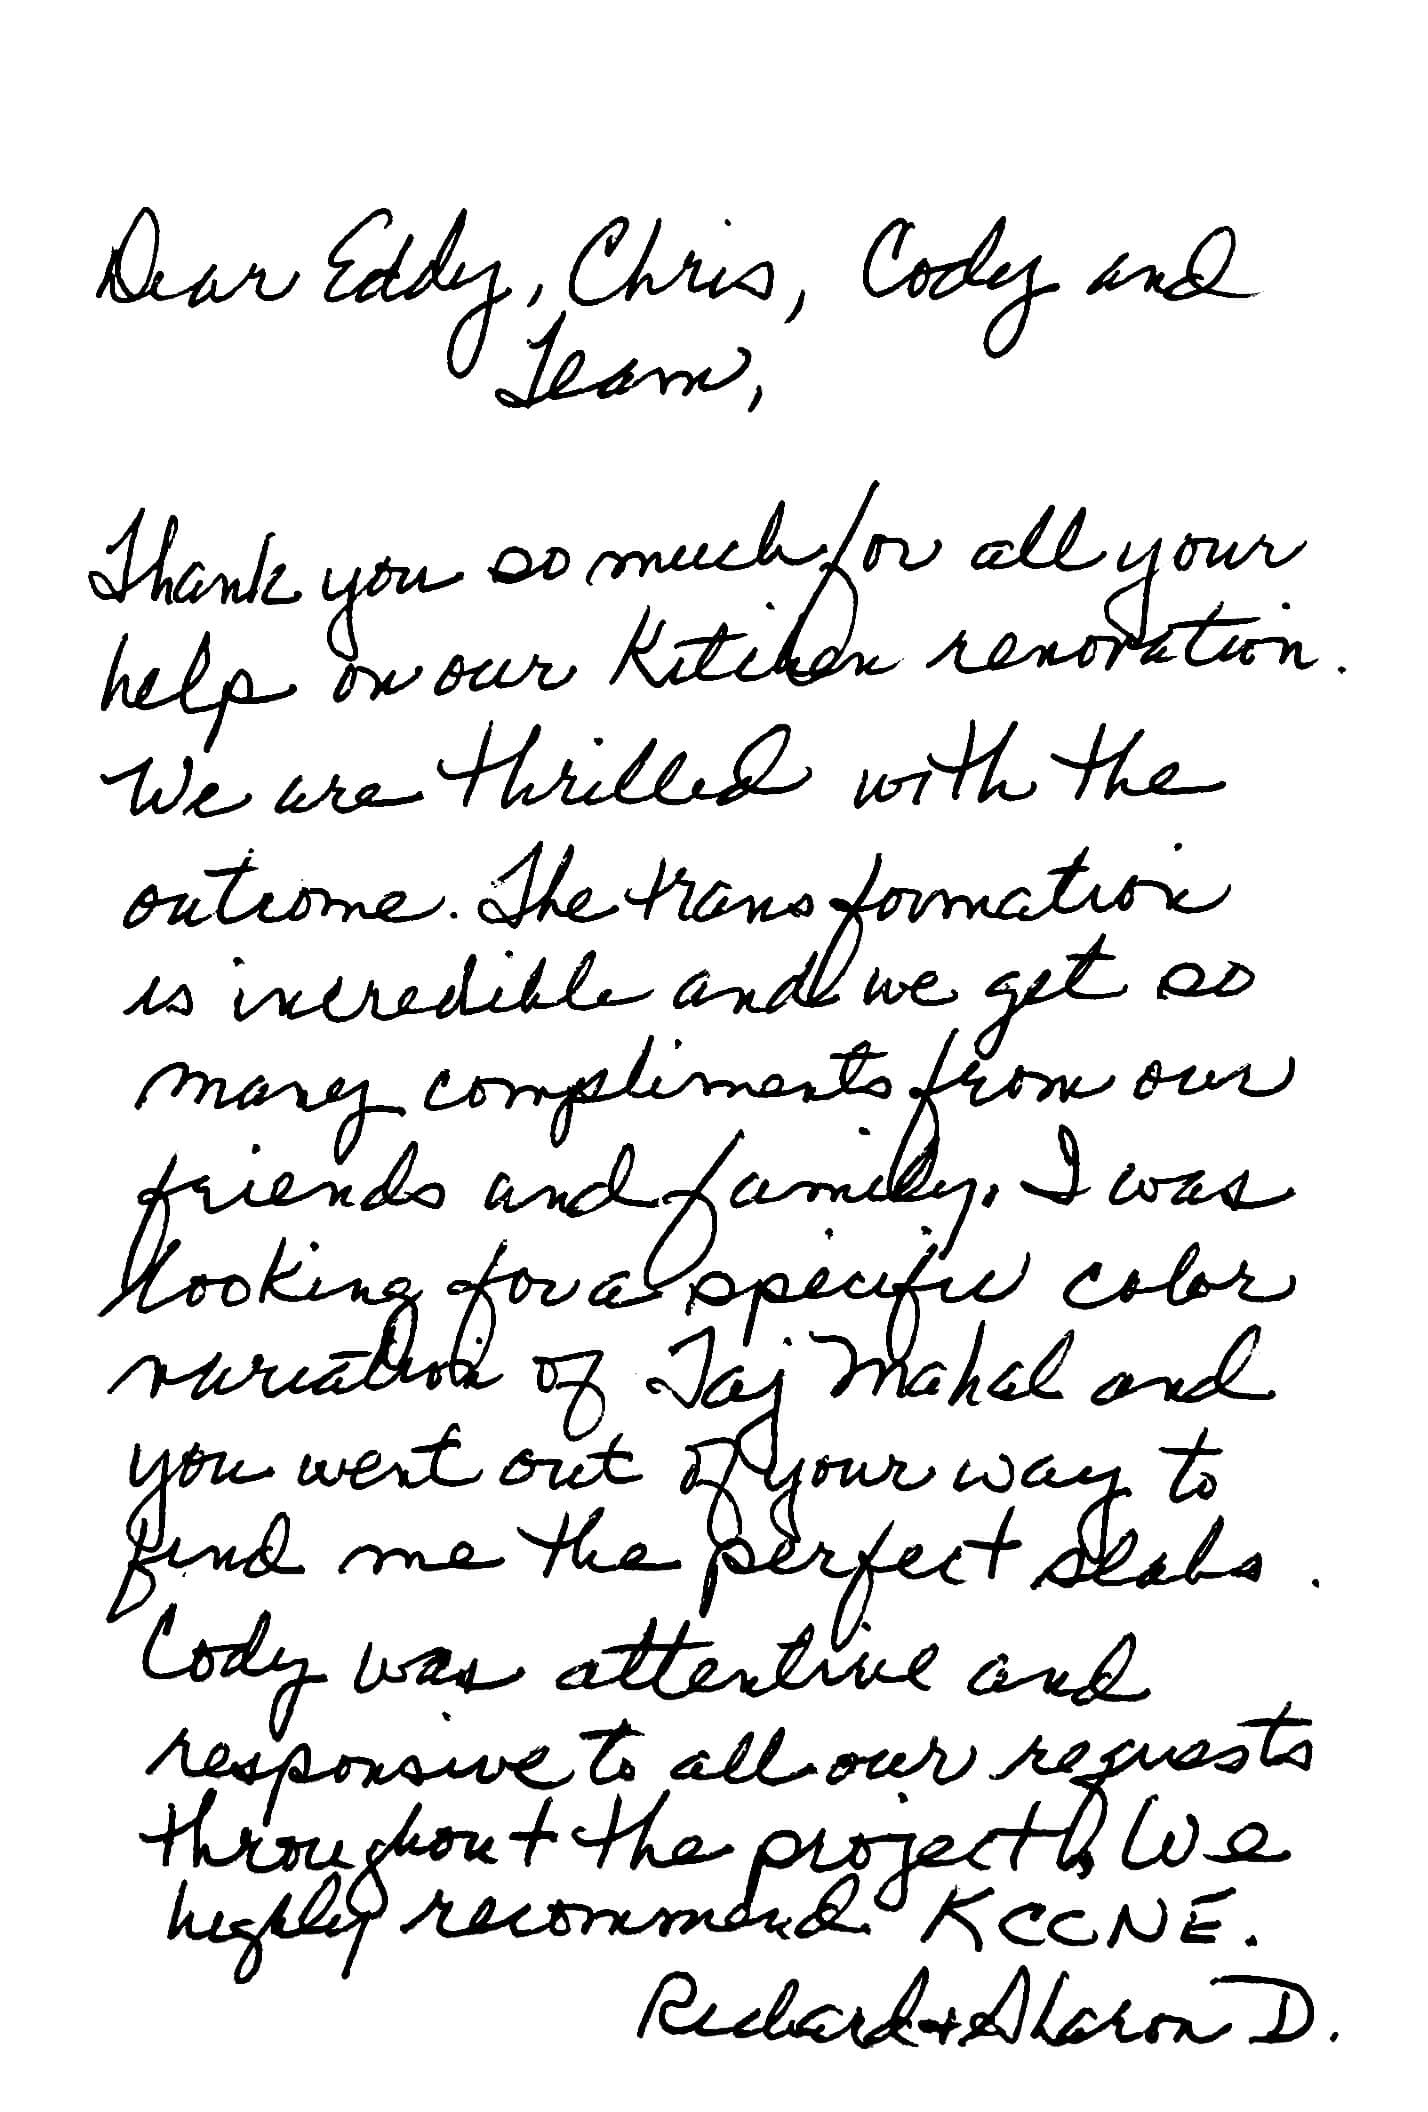 Dear Eddy, Chris, Cody and
Team,
Thank you so much for all your
help on our Kitchen renovation.
We are thrilled with the
outcome. The transformation
is incredible and we get so
many compliments from our
friends and family. I was
looking for a specific color
variation of Taj Mahal and
you went out of your way to
find me the perfect slabs.
Cody was attentive and
responsive to all our requests
throughout the project. We
highly recommend KCCNE.
Richard + Sharon D.